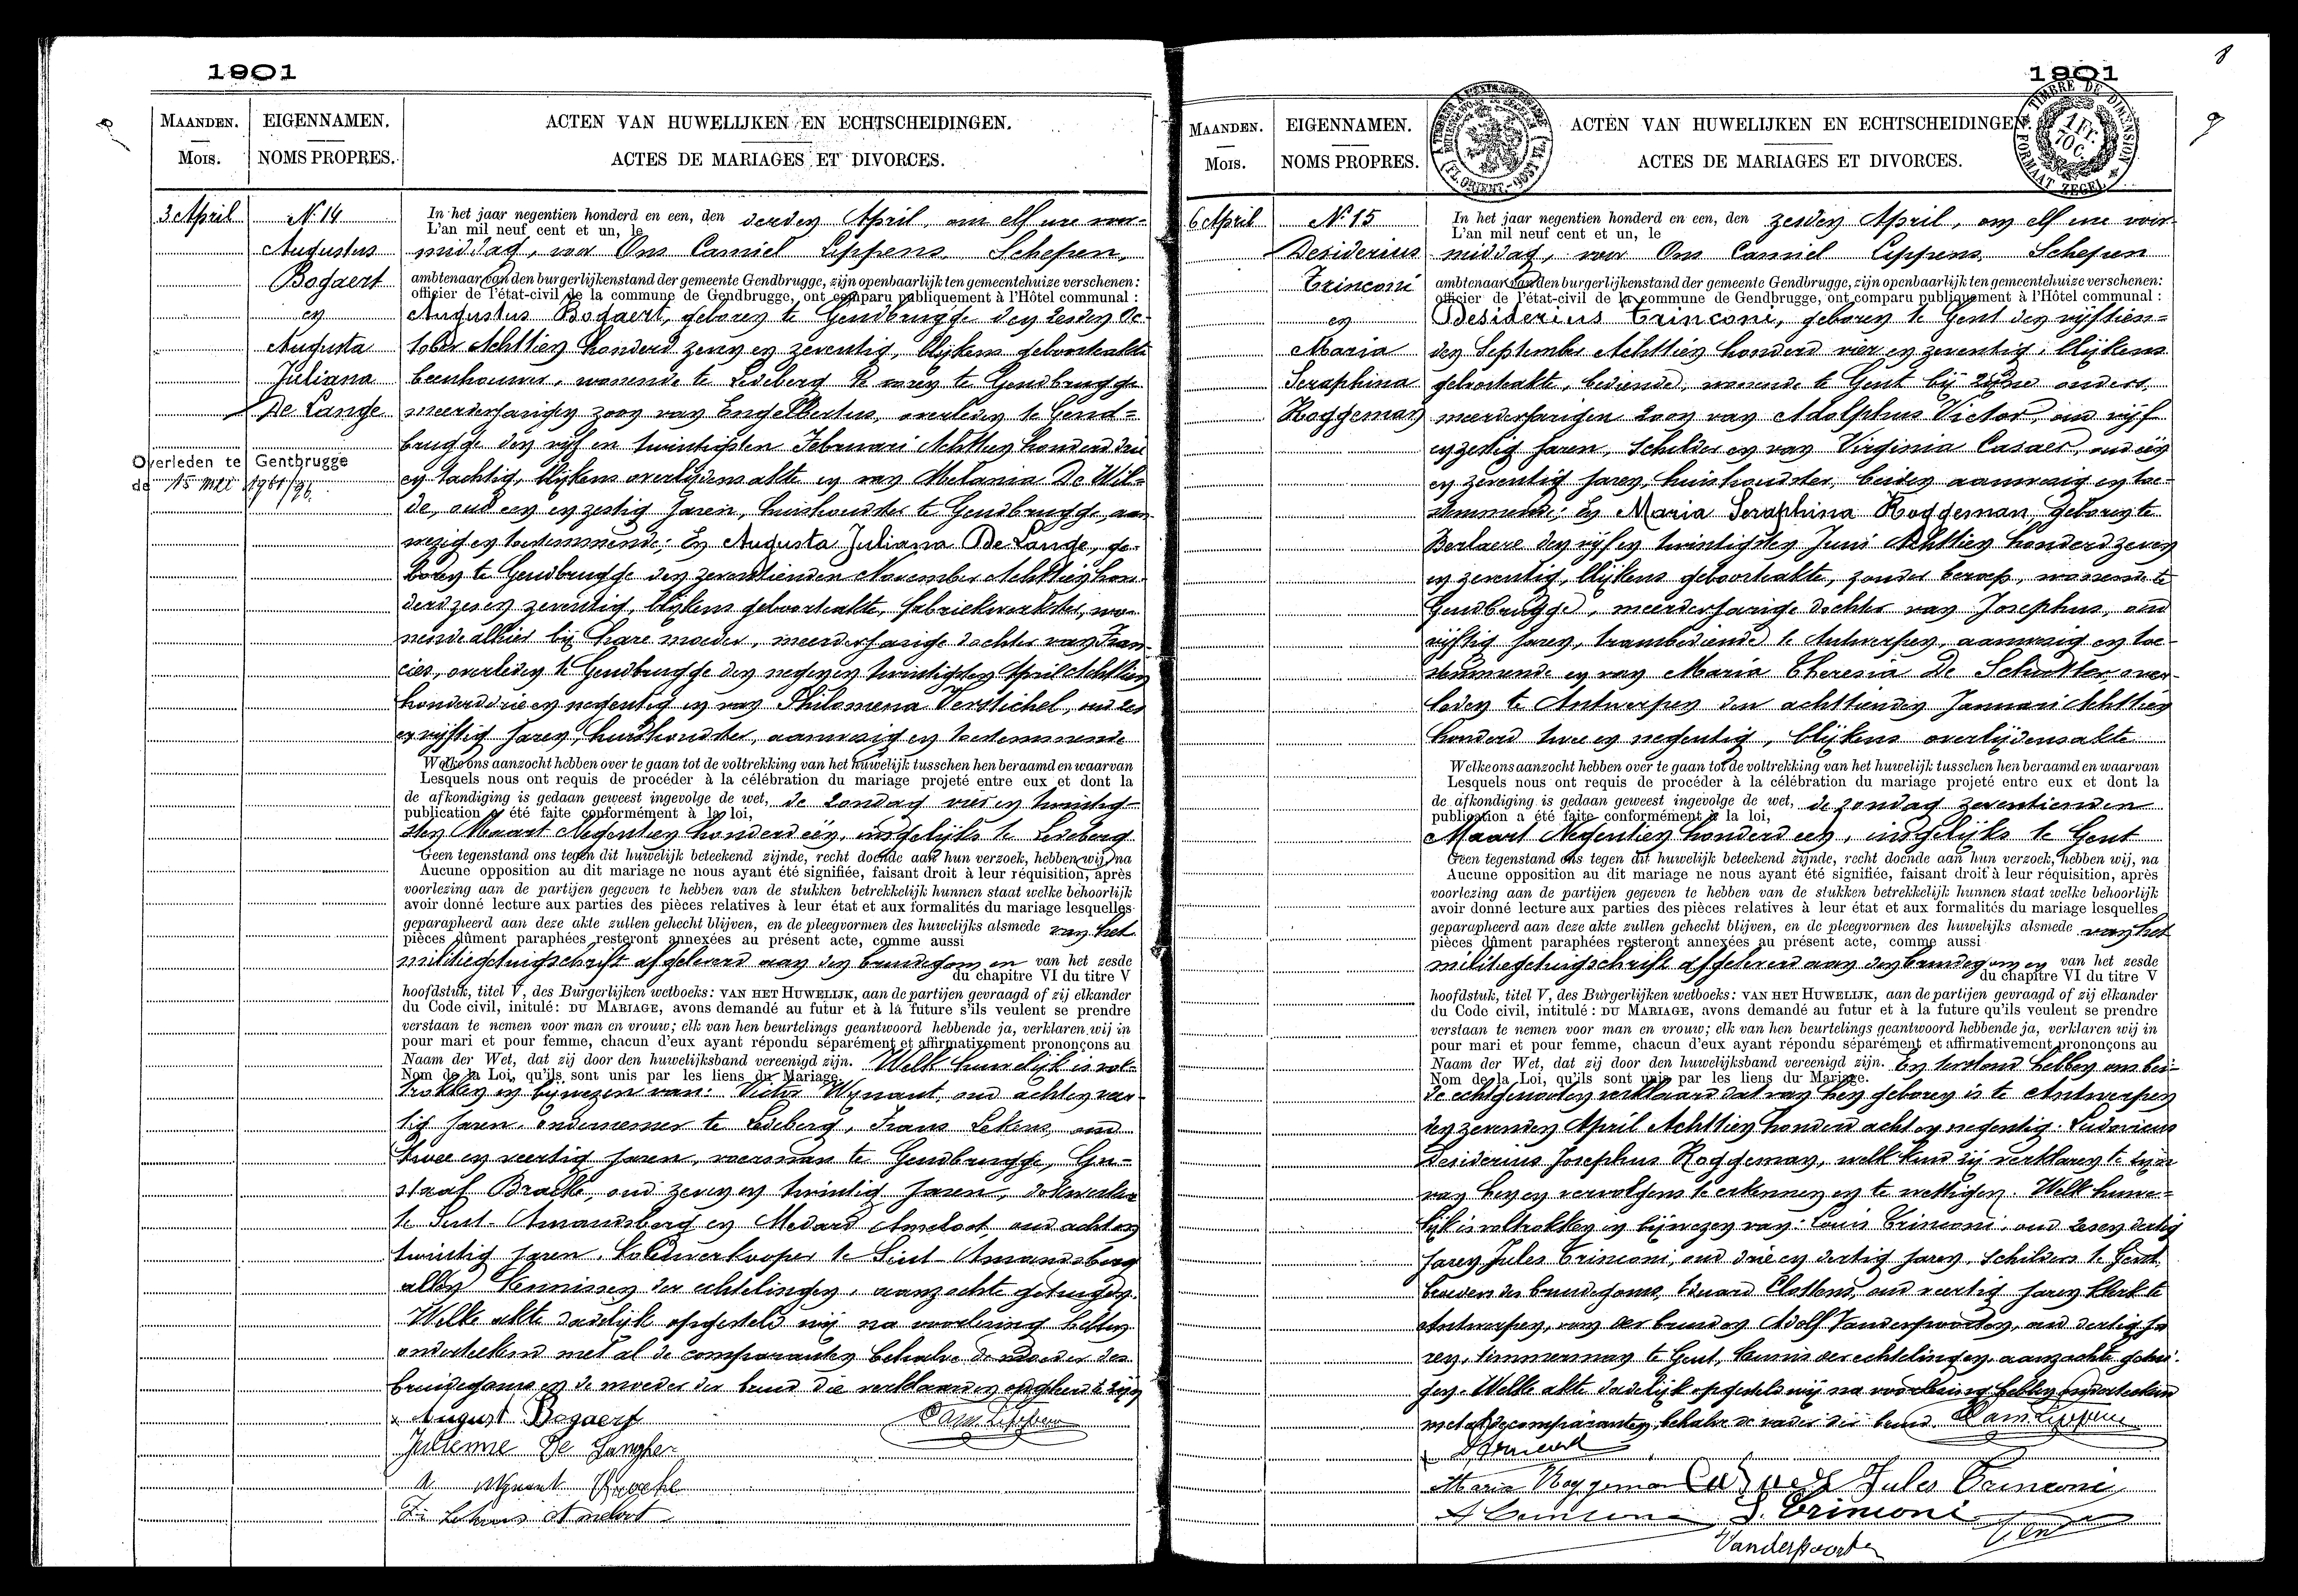 1901
MAANDEN.
Mois.
EIGENNAMEN.
NOMS PROPRES.
ACTEN VAN HUWELIJKEN EN ECHTSCHEIDINGEN.
ACTES DE MARIAGES ET DIVORCES.
3 April
No 14
Augustus
Bogaert
en
Augusta
Juliana
De Lange
Overleden te Gentbrugge
de 15 mei 1961/96.
In het jaar negentien honderd en een, den derden April, om elf ure voor-
L'an mil neuf cent et un, le
middag, voor Ons Camiel Lippens, Schepen,
ambtenaar van den burgerlijkenstand der gemeente Gendbrugge, zijn openbaarlijk ten gemeentehuize verschenen:
officier de l'état-civil de la commune de Gendbrugge, ont comparu publiquement à l'Hôtel communal :
Augustus Bogaert, geboren te Gendbrugge den zesden Oc-
tober Achttien honderd zeven en zeventig, blijkens geboorteakte
beenhouwer, wonende te Ledeberg te voren te Gendbrugge
meerderjarigen zoon van Engelbertus, overleden te Gend-
brugge den vijf en twintigsten Februari Achttien honderd drie
en tachtig, blijkens overlijdensakte en van Melania De Wil-
de, oud een en zestig jaren, huishoudster te Gendbrugge, aan
wezig en toestemmende; En Augusta Juliana De Lange, ge-
boren te Gendbrugge den zeventienden November Achttien hon-
derd zes en zeventig, blijkens geboorteakte, fabriekwerkster, wo-
nende alhier bij hare moeder, meerderjarige dochter van Fran-
cies, overleden te Gendbrugge den negen en twintigsten April Achttien
honderd drie en negentig en van Philomena Verstichel, oud zes
en vijftig jaren, huishoudster, aanwezig en toestemmende
Welke ons aanzocht hebben over te gaan tot de voltrekking van het huwelijk tusschen hen beraamd en waarvan
Lesquels nous ont requis de procéder à la célébration du mariage projeté entre eux et dont la
de afkondiging is gedaan geweest ingevolge de wet, de zondag vier en twintig-
publication a été faite conformément à la loi,
sten Maart Negentien honderd één, insgelijks te Ledeberg
Geen tegenstand ons tegen dit huwelijk beteekend zijnde, recht doende aan hun verzoek, hebben wij, na
Aucune opposition au dit mariage ne nous ayant été signifiée, faisant droit à leur réquisition, après
voorlezing aan de partijen gegeven te hebben van de stukken betrekkelijk hunnen staat welke behoorlijk
avoir donné lecture aux parties des pièces relatives à leur état et aux formalités du mariage lesquelles
geparapheerd aan deze akte zullen gehecht blijven, en de pleegvormen des huwelijks alsmede van het
pièces dûment paraphées resteront annexées au présent acte, comme aussi
militiegetuigschrift afgeleverd aan den bruidegom en van het zesde
du chapitre VI du titre V
hoofdstuk, titel V, des Burgerlijken wetboeks: VAN HET HUWELIJK, aan de partijen gevraagd of zij elkander
du Code civil, initulé: DU MARIAGE, avons demandé au futur et à la future s'ils veulent se prendre
verstaan te nemen voor man en vrouw; elk van hen beurtelings geantwoord hebbende ja, verklaren wij in
pour mari et pour femme, chacun d'eux ayant répondu séparément et affirmativement prononçons au
Naam der Wet, dat zij door den huwelijksband vereenigd zijn. Welk huwelijk is vol-
Nom de la Loi, qu'ils sont unis par les liens du Mariage.
trokken in bijwezen van: Victor Wynant, oud acht en veer-
tig jaren, ondernemer te Ledeberg, Frans Lekens, oud
twee en veertig jaren, voerman te Gendbrugge, Gu-
staaf Bracke, oud zeven en twintig jaren, dokwerker
te Sint-Amandsberg en Medard Ameloot, oud acht en
twintig jaren, te Sint Amandsberg
allen kennissen der echtelingen, aanzochte getuigen.
Welke akte dadelijk opgesteld wij na voorlezing hebben
onderteekend met al de comparanten behalve de moeder des
bruidegoms en de moeder der bruid die verklaarden ongeleerd te zijn
August Bogaert Cam Lippens
Julienne De Langhe
V Wynant Bracke
Fr Lekens Ameloot
1901
8
9
TIMBRE DE DIMENSION
1 Fr. 70 C.
FORMAAT ZEGEL
(FL. ORIENT.-GAND)
MAANDEN.
Mois.
EIGENNAMEN.
NOMS PROPRES.
ACTEN VAN HUWELIJKEN EN ECHTSCHEIDINGEN
ACTES DE MARIAGES ET DIVORCES.
6 April
No 15
Desiderius
Trinconi
en
Maria
Seraphina
Roggeman
In het jaar negentien honderd en een, den zesden April, om elf ure voor-
L'an mil neuf cent et un, le
middag, voor Ons Camiel Lippens, Schepen
ambtenaar van den burgerlijkenstand der gemeente Gendbrugge, zijn openbaarlijk ten gemeentehuize verschenen:
officier de l'état-civil de la commune de Gendbrugge, ont comparu publiquement à l'Hôtel communal :
Desiderius Trinconi, geboren te Gent den vijftien-
den September Achttien honderd vier en zeventig, blijkens
geboorteakte, bediende, wonende te Gent bij zijne ouders,
meerderjarigen zoon van Adolphus Victor, oud vijf
en zestig jaren, schilder en van Virginia Casaer, oud één
en zeventig jaren, huishoudster, beiden aanwezig en toe-
stemmende; En Maria Seraphina Roggeman, geboren te
Berlaere den vijf en twintigsten Juni Achttien honderd zeven
en zeventig, blijkens geboorteakte, zonder beroep, wonende te
Gendbrugge, meerderjarige dochter van Josephus, oud
vijftig jaren, trambediende te Antwerpen, aanwezig en toe-
stemmende en van Maria Theresia De Schutter, over-
leden te Antwerpen den achttienden Januari Achttien
honderd twee en negentig, blijkens overlijdensakte
Welke ons aanzocht hebben over te gaan tot de voltrekking van het huwelijk tusschen hen beraamd en waarvan
Lesquels nous ont requis de procéder à la célébration du mariage projeté entre eux et dont la
de afkondiging is gedaan geweest ingevolge de wet, de zondag zeventienden
publication a été faite conformément à la loi,
Maart Negentien honderd een, insgelijks te Gent
Geen tegenstand ons tegen dit huwelijk beteekend zijnde, recht doende aan hun verzoek, hebben wij, na
Aucune opposition au dit mariage ne nous ayant été signifiée, faisant droit à leur réquisition, après
voorlezing aan de partijen gegeven te hebben van de stukken betrekkelijk hunnen staat welke behoorlijk
avoir donné lecture aux parties des pièces relatives à leur état et aux formalités du mariage lesquelles
geparapheerd aan deze akte zullen gehecht blijven, en de pleegvormen des huwelijks alsmede van het
pièces dûment paraphées resteront annexées au présent acte, comme aussi
militiegetuigschrift afgeleverd aan den bruidegom en van het zesde
du chapitre VI du titre V
hoofdstuk, titel V, des Burgerlijken wetboeks: VAN HET HUWELIJK, aan de partijen gevraagd of zij elkander
du Code civil, intitulé: DU MARIAGE, avons demandé au futur et à la future qu'ils veulent se prendre
verstaan te nemen voor man en vrouw; elk van hen beurtelings geantwoord hebbende ja, verklaren wij in
pour mari et pour femme, chacun d'eux ayant répondu séparément et affirmativement prononçons au
Naam der Wet, dat zij door den huwelijksband vereenigd zijn. En terstond hebben ons bei-
Nom de la Loi, qu'ils sont unis par les liens du Mariage.
de echtgenooten verklaard dat van hen geboren is te Antwerpen
den zevenden April Achttien honderd acht en negentig: Ludovicus
Desiderius Josephus Roggeman, welk kind zij verklaren te zijn
van hen en vervolgens te erkennen en te wettigen. Welk huwe-
lijk is voltrokken in bijwezen van: Louis Trinconi, oud zes en dertig
jaren, Jules Trinconi, oud drie en dertig jaren, schilders te Gent,
broeders des bruidegoms, Eduard Clottens, oud veertig jaren klerk te
Antwerpen, der bruid en Adolf Vanderpoorten, oud dertig ja
ren, timmerman te Gent, kennis der echtelingen, aanzochte getui-
gen. Welke akte dadelijk opgesteld wij na voorlezing hebben onderteekend
met al de comparanten, behalve de vader der bruid. Cam Lippens
Maria Roggeman Jules Trinconi
Trinconi
Vanderpoorten